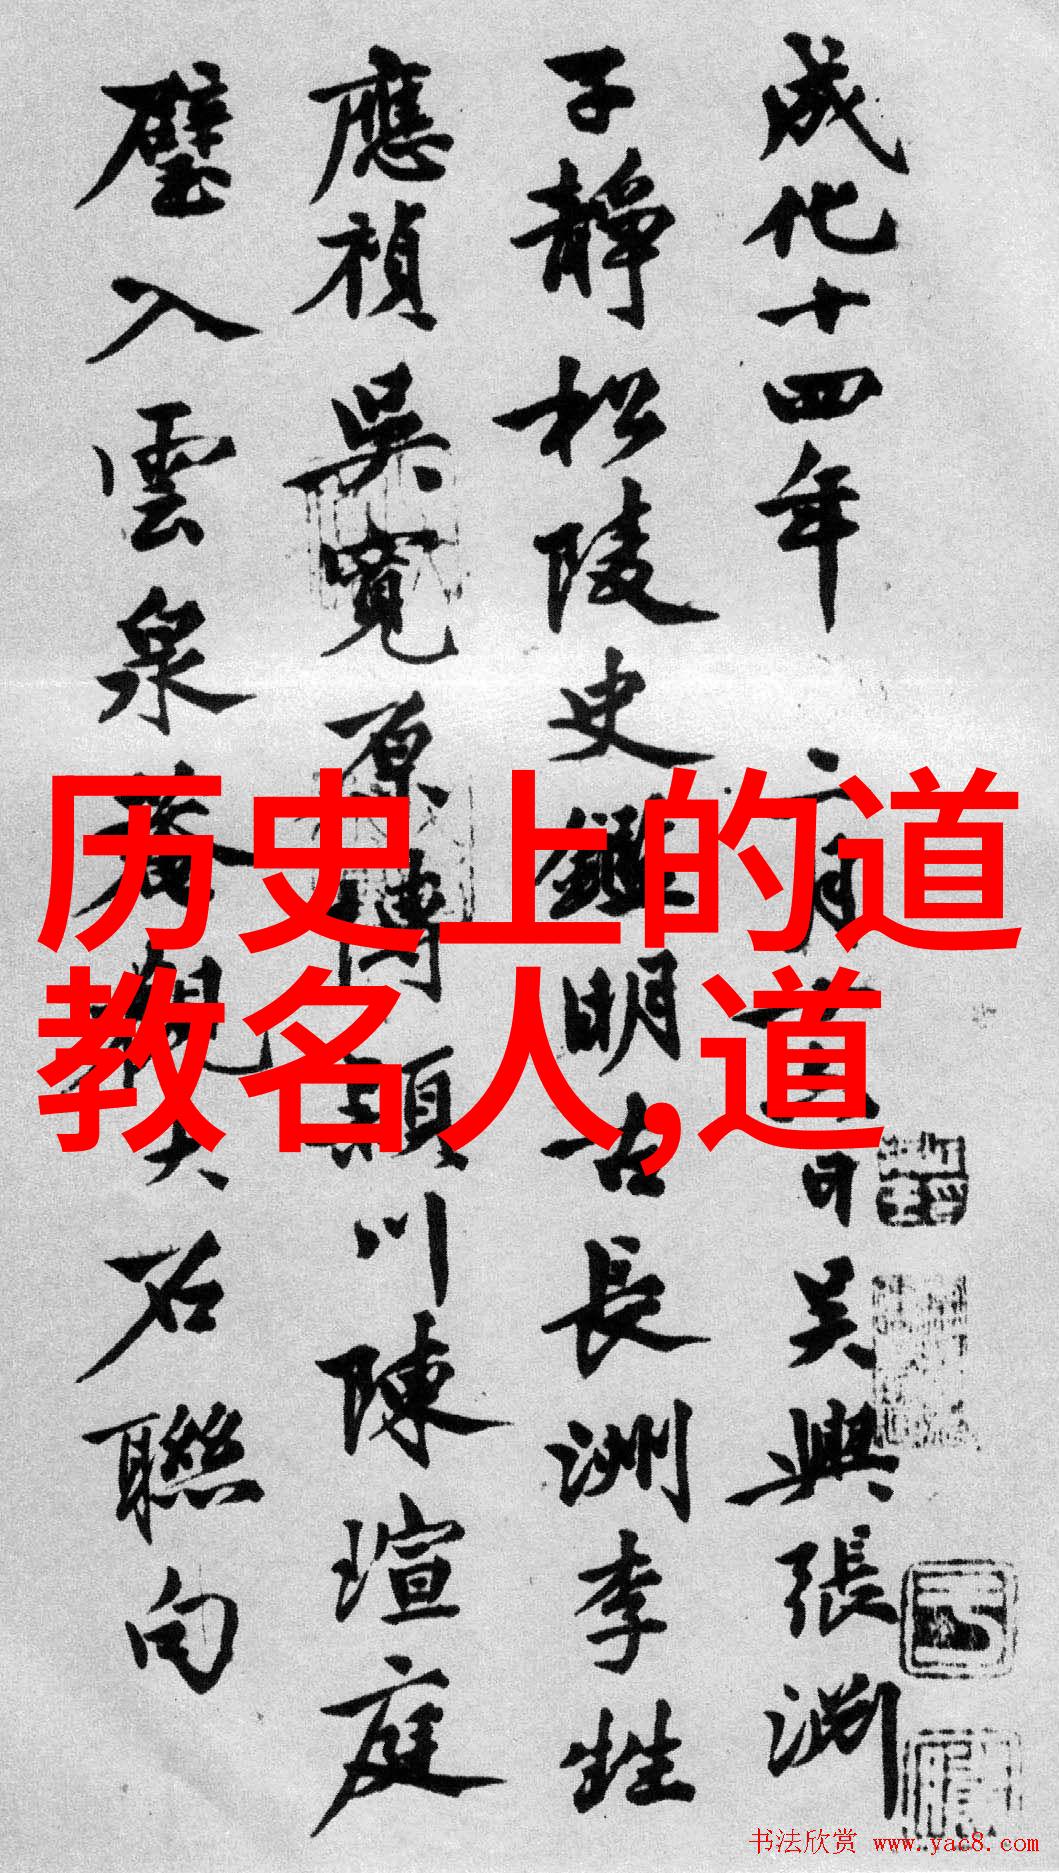 成化十四年二月日吳興張淵
子靜松陵史鑑明古長洲李甡
應禎吳寬原博潁川陳瑄庭
璧入雲泉菴觀大石聯句
历史上的道
教名人,道
书法欣赏 www.yac8.com